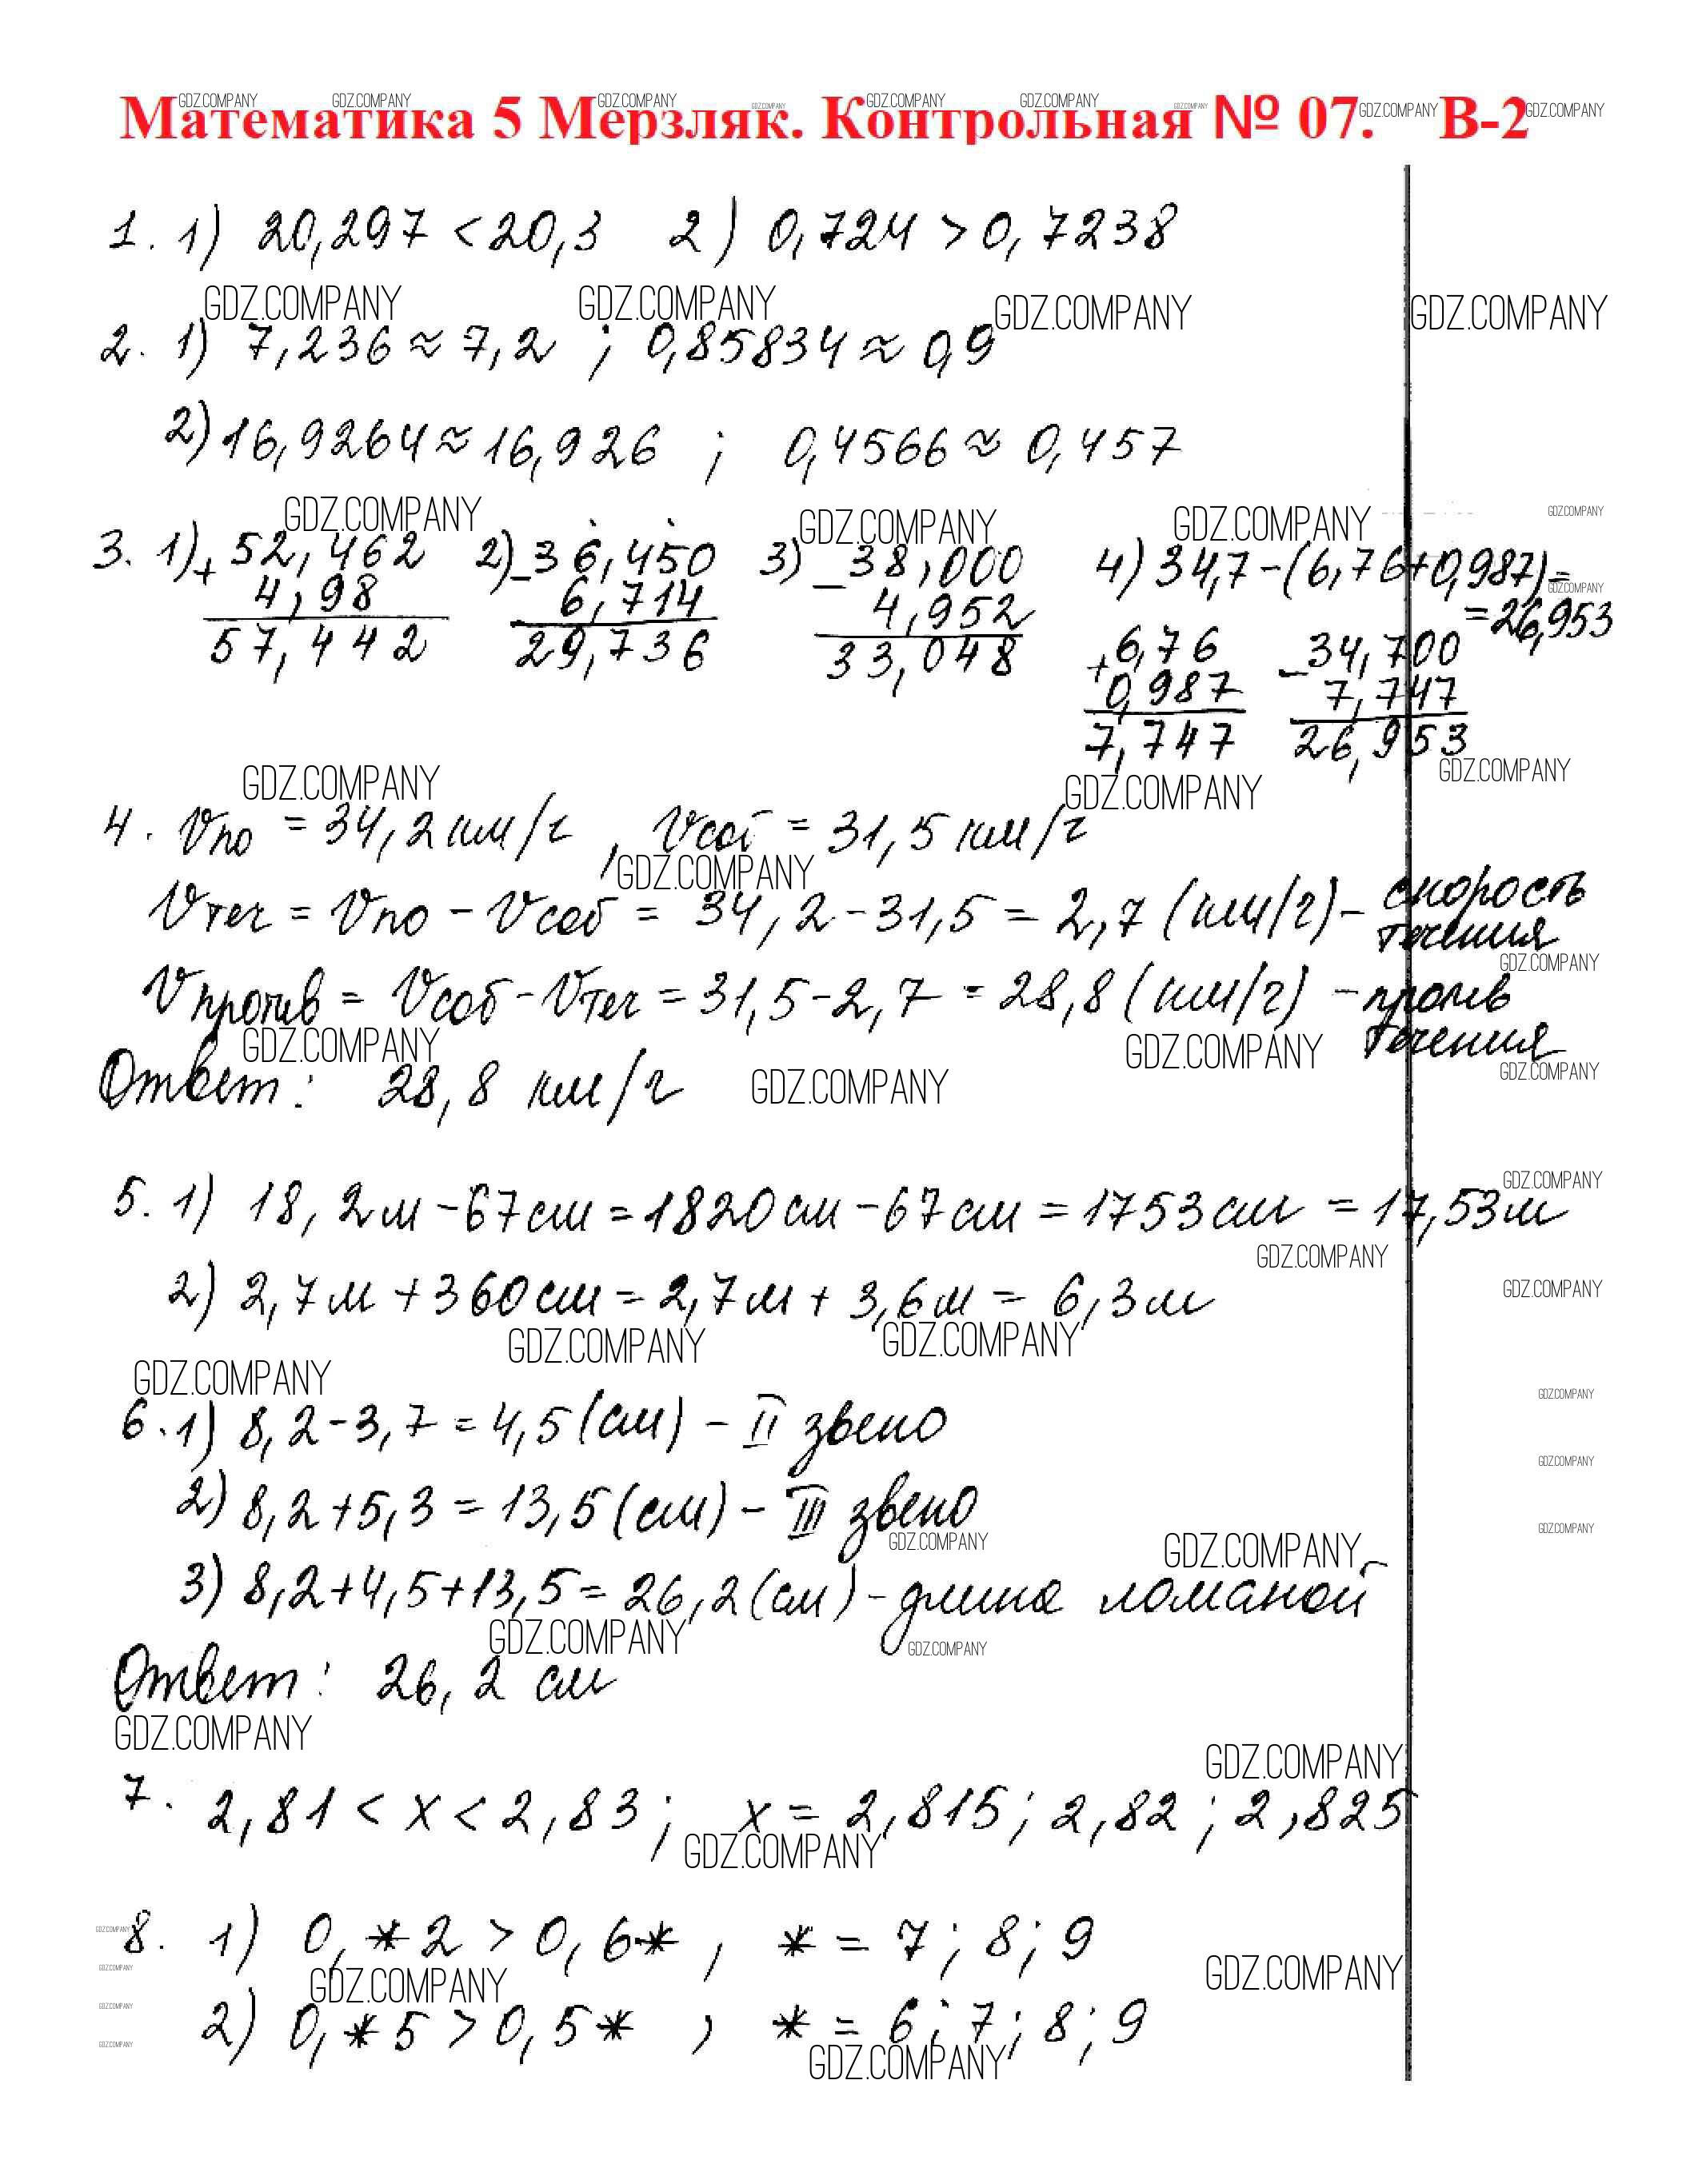 Математика 5 Мерзляк. Контрольная № 07. В-2
1. 1) 20,297 < 20,3 2) 0,724 > 0,7238
2. 1) 7,236 ≈ 7,2 ; 0,85834 ≈ 0,9
2) 16,9264 ≈ 16,926 ; 0,4566 ≈ 0,457
3. 1) + 52,462 2) - 36,450 3) - 38,000 4) 34,7 - (6,76 + 0,987) =
= 26,953
4,98 6,714 4,952
57,442 29,736 33,048
+ 6,76 - 34,700
0,987 7,747
7,747 26,953
4. Vпо = 34,2 км/г , Vсоб = 31,5 км/г
Vтеч = Vпо - Vсоб = 34,2 - 31,5 = 2,7 (км/г) - скорость
течения
Vпротив = Vсоб - Vтеч = 31,5 - 2,7 = 28,8 (км/г) - против
течения
Ответ: 28,8 км/г
5. 1) 18,2 м - 67 см = 1820 см - 67 см = 1753 см = 17,53 м
2) 2,7 м + 360 см = 2,7 м + 3,6 м = 6,3 м
6. 1) 8,2 - 3,7 = 4,5 (см) - II звено
2) 8,2 + 5,3 = 13,5 (см) - III звено
3) 8,2 + 4,5 + 13,5 = 26,2 (см) - длина ломаной
Ответ: 26,2 см
7. 2,81 < x < 2,83 ; x = 2,815 ; 2,82 ; 2,825
8. 1) 0,*2 > 0,6* , * = 7 ; 8 ; 9
2) 0,*5 > 0,5* , * = 6 ; 7 ; 8 ; 9
GDZ.COMPANY